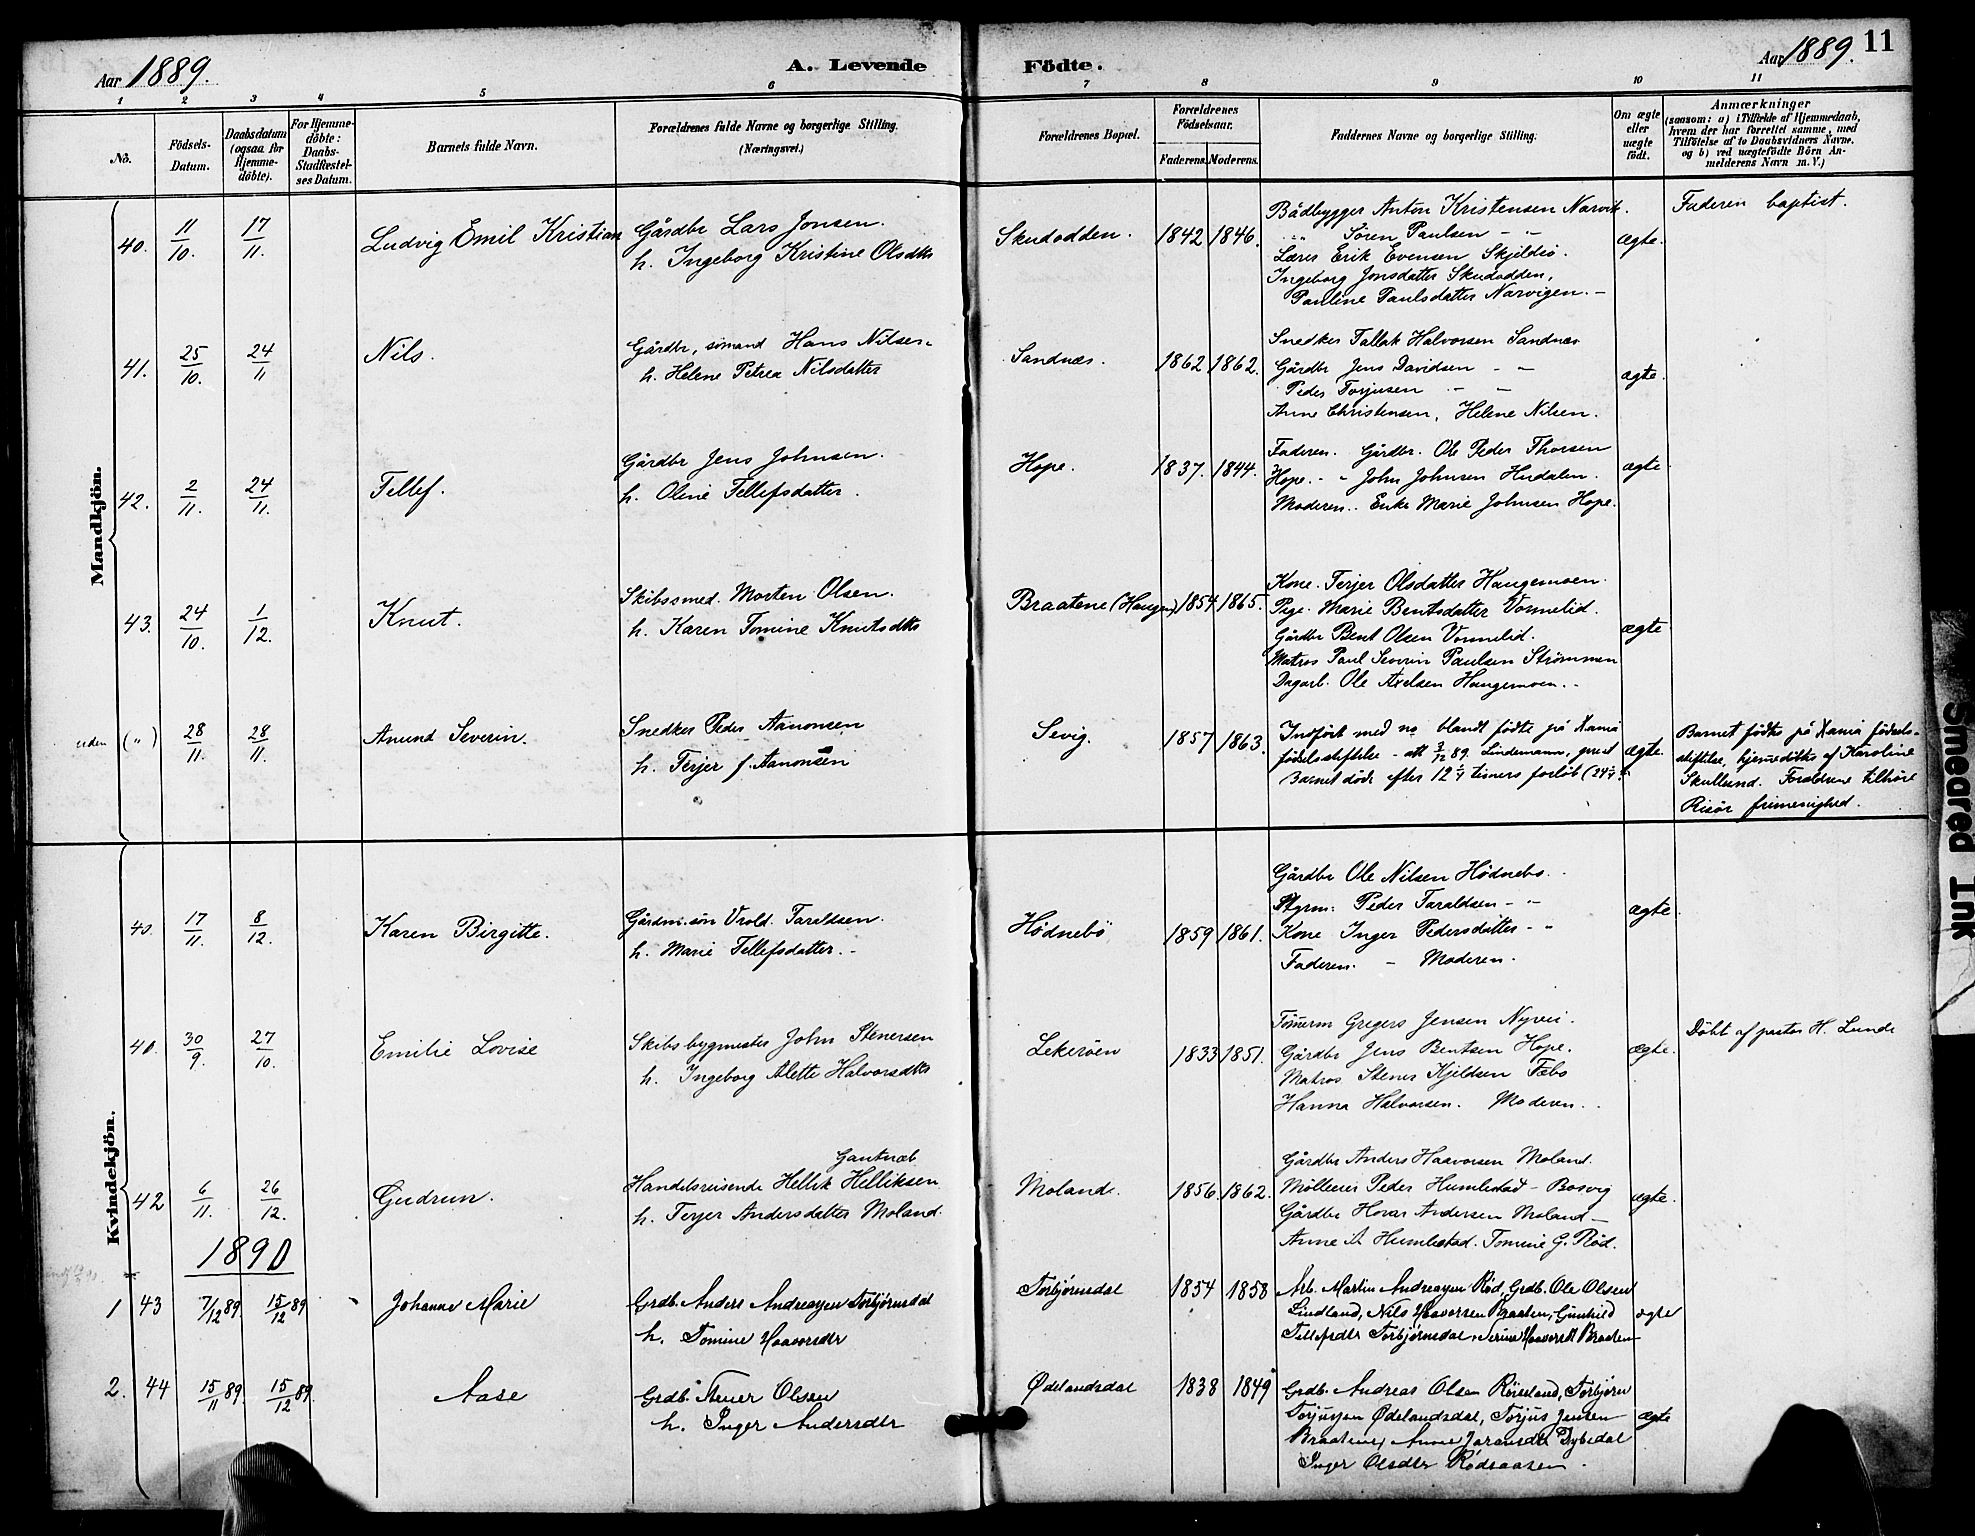 Aar 1889.
A. Levende Födte.
Aar 1889.
11
1 2 3 4 5 6 7 8 9 10 11
No.
Födsels-Datum.
Daabsdatum (ogsaa for Hjemme-döbte).
For Hjemme-döbte: Daabs-Stadfæstel-ses Datum.
Barnets fulde Navn.
Forældrenes fulde Navne og borgerlige Stilling.
(Næringsvei.)
Forældrenes Bopæl.
Forældrenes Födselsaar.
Faderens. Moderens.
Faddernes Navne og borgerlige Stilling.
Om ægte eller uægte født.
Anmærkninger
(saasom: a) i Tilfælde af Hjemmedaab,
hvem der har forrettet samme, med
Tilföielse af to Daabsvidners Navne.
og b) ved uægtefödte Börn An-
melderens Navn m. V.)
Mandkjön.
40. 11/10. 17/11. Ludvig Emil Kristian
Gårdbr Lars Jonsen.
h. Ingeborg Kristine Olsdtr
Skudodden. 1842 1846.
Bådbygger Anton Kristensen Narvik.
" Sören Paulsen - -
Lærer Erik Evensen Skjeldsö.
Ingeborg Jonsdatter Skudodden,
Pauline Paulsdatter Narvigen. -
ægte.
Faderen baptist.
41. 25/10. 24/11 Nils.
Gårdbr, sömand Hans Nilsen.
h. Helene Petrea Nilsdatter
Sandnæs. 1862 1862.
Snedker Tallak Halvorsen Sandnæs
Gårdbr Jens Davidsen - -
Peder Torjusen - -
Anne Christensen, Helene Nilsen.
ægte.
42. 2/11. 24/11. Tellef.
Gårdbr Jens Johnsen.
h. Oline Tellefsdatter.
Hope. 1837. 1844.
Faderen. Gårdbr. Ole Peder Thorsen
Hope. - " John Johnsen Hudalen.
Moderen.. Enke Marie Johnsen Hope.
ægte
43. 24/10. 1/12. Knut.
Skibssmed. Morten Olsen.
h. Karen Tomine Knutsdtr
Braatene (Haugen) 1854 1865.
Kone. Terjer Olsdatter Haugemoen.
Pige. Marie Bentsdatter Vormelid.
Gårdbr Bent Olsen Vormelid.
Matros Paul Severin Paulsen Strömmen
Dagarb. Ole Axelsen Haugemoen..
ægte
uden (") 28/11. 28/11. Amund Severin.
Snedker Peder Aanonsen
h. Terjer f. Aanonsen
Sevig. 1857 1863.
Indført med no blandt fødte på Xania
fødselsstiftelse - att 3/12 89. Lindemann, prest
Barnet døde efter 12 1/4 timers forløb
ægte.
Barnet født på Xania fødsels-
stiftelse, hjemmedöbt af Karoline
Skullerud. Forældrene tilhøre
Risør frimenighed.
Kvindekjön.
40. 17/11. 8/12. Karen Birgitte.
Gårdm. sön Vrold. Taraldsen.
h. Marie Tellefsdatter. -
Hödnebö 1859 1861.
Gårdbr Ole Nilsen Hödnebo..
Styrm: Peder Taraldsen - "
Kone Inger Pedersdatter - "
Faderen. - Moderen.
ægte.
40. 30/9. 27/10. Emilie Lovise
Skibsbygmester John Stenersen
h. Ingeborg Alette Halvorsdtr
Lekeröen 1833 1851.
Tömerm Gregers Jensen Nyvei.
Gårdbr Jens Bentsen Hope.
Matros Stener Kjeldsen Fæbo
Hanna Halvorsen. Moderen..
ægte.
Döbt af pastor H. Lunde
42 6/11. 26/12. Gudrun.
Gautnæb
Handelsreisende Hellik Helliksen
h. Terjer Andersdatter Moland.
Moland. 1856. 1862.
Gårdbr Anders Haavorsen Moland.
Möller Peder Humlestad - Bosvig
Gårdbr Hovar Andersen Moland -
Anne A Humlestad. Tomine G. Röd.
ægte.
1890
1 43 7/12 89. 15/12 89 Johanne Marie
Grdb. Anders Andreassen Torbjörnsdal
h. Tomine Haavorsdtr
Torbjörnsdal 1854 1858
Arb. Martin Andreassen Röd, Grdb. Ole Olsen
Lindland, Nils Haavorsen Braaten, Gunhild
Tellefsdtr Torbjörnsdal, Serine Haavorsdt Braaten
ægte
2. 44 15/11 89. 15/12 89. Aase
Grdb. Stener Olsen
h. Inger Andersdtr
Ødelandsdal 1838 1849
Grdb. Andreas Olsen Röiseland, Torbjörn
Torjussen Ødelandsdal, Torjus Jensen
Braatene, Anne Joransdt Dybedal
Inger Olsdtr Rödsaasen.
ægte
Smeared Ink